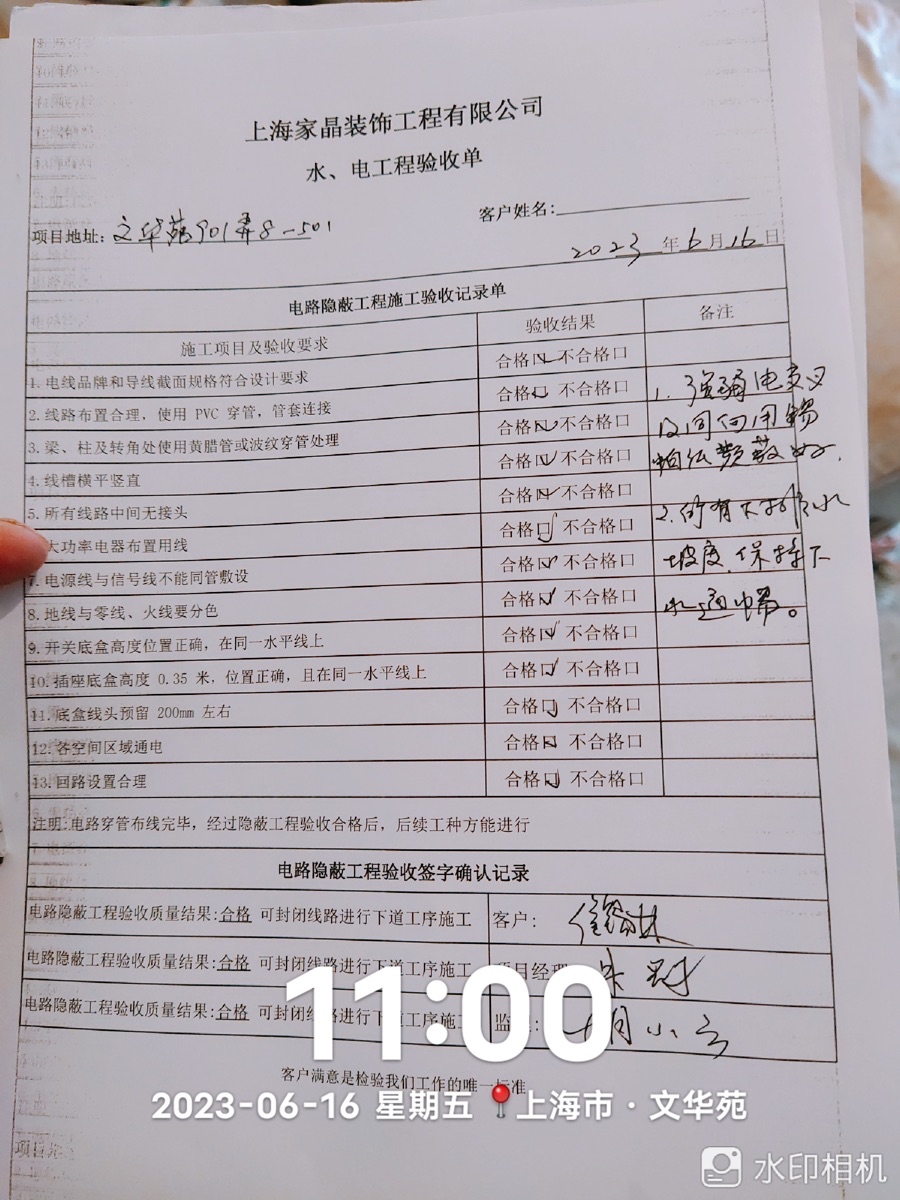 上海家晶装饰工程有限公司
水、电工程验收单
项目地址:文华苑901弄8-501
客户姓名:
2023年6月16日
电路隐蔽工程施工验收记录单
施工项目及验收要求 验收结果 备注
合格☑不合格口
1.电线品牌和导线截面规格符合设计要求 合格☑不合格口
2.线路布置合理，使用 PVC 穿管，管套连接 合格☑不合格口
3.梁、柱及转角处使用黄腊管或波纹穿管处理 合格☑不合格口
4.线槽横平竖直 合格☑不合格口
5.所有线路中间无接头 合格☑不合格口
大功率电器布置用线 合格☑不合格口
7.电源线与信号线不能同管敷设 合格☑不合格口
8.地线与零线、火线要分色 合格☑不合格口
9.开关底盒高度位置正确，在同一水平线上 合格☑不合格口
10.插座底盒高度 0.35 米，位置正确，且在同一水平线上 合格☑不合格口
11.底盒线头预留 200mm 左右 合格☑不合格口
12.各空间区域通电 合格☑不合格口
13.回路设置合理
1.强弱电交叉
及间向用锡
铂纸敷好.
2.所有下排水
坡度.保持下
水通畅。
注明:电路穿管布线完毕，经过隐蔽工程验收合格后，后续工种方能进行
电路隐蔽工程验收签字确认记录
电路隐蔽工程验收质量结果:合格 可封闭线路进行下道工序施工 客户:
电路隐蔽工程验收质量结果:合格 可封闭线路进行下道工序施工 项目经理
电路隐蔽工程验收质量结果:合格 可封闭线路进行下道工序施工 监 : 周小云
客户满意是检验我们工作的唯一标准
11:00
2023-06-16 星期五 上海市·文华苑
水印相机